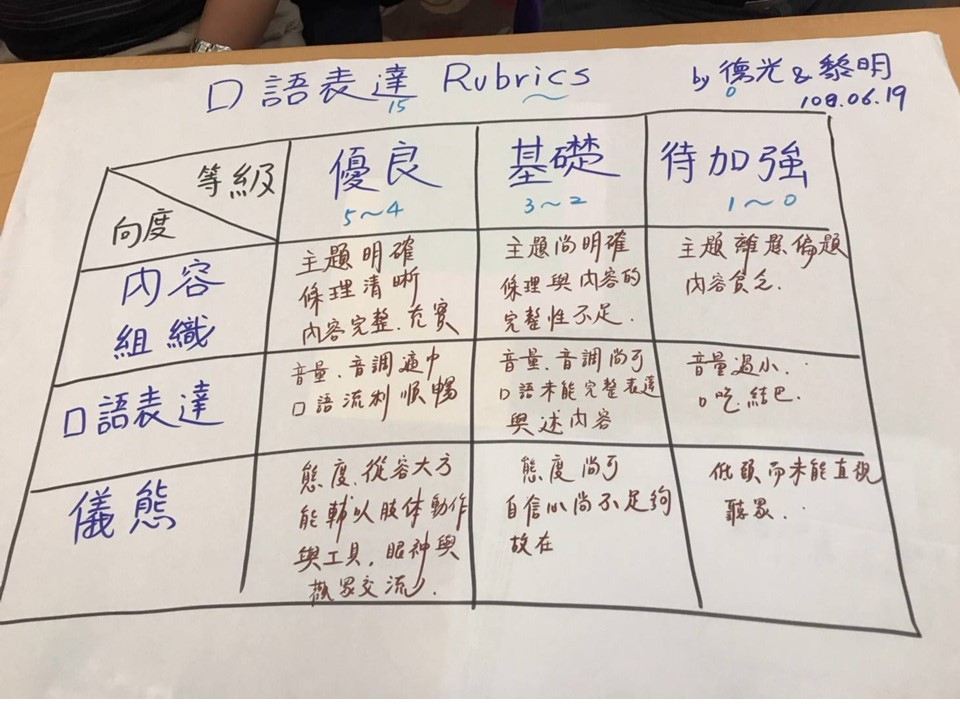 口語表達 Rubrics
15 ～
by 德光 & 黎明
0
108.06.19
等級
向度
優良
5～4
基礎
3～2
待加強
1～0
內容
組織
主題明確
條理清晰
內容完整.充實
主題尚明確
條理與內容的
完整性不足.
主題離題偏題
內容貧乏.
口語表達
音量、音調適中
口語流利順暢
音量、音調尚可
口語未能完整表達
與述內容
音量過小、
口吃.結巴.
儀態
態度.從容大方
能輔以肢体動作
與工具.眼神與
觀眾交流.
態度尚可
自信心尚不足夠
故在
低頭而未能直視
聽眾.